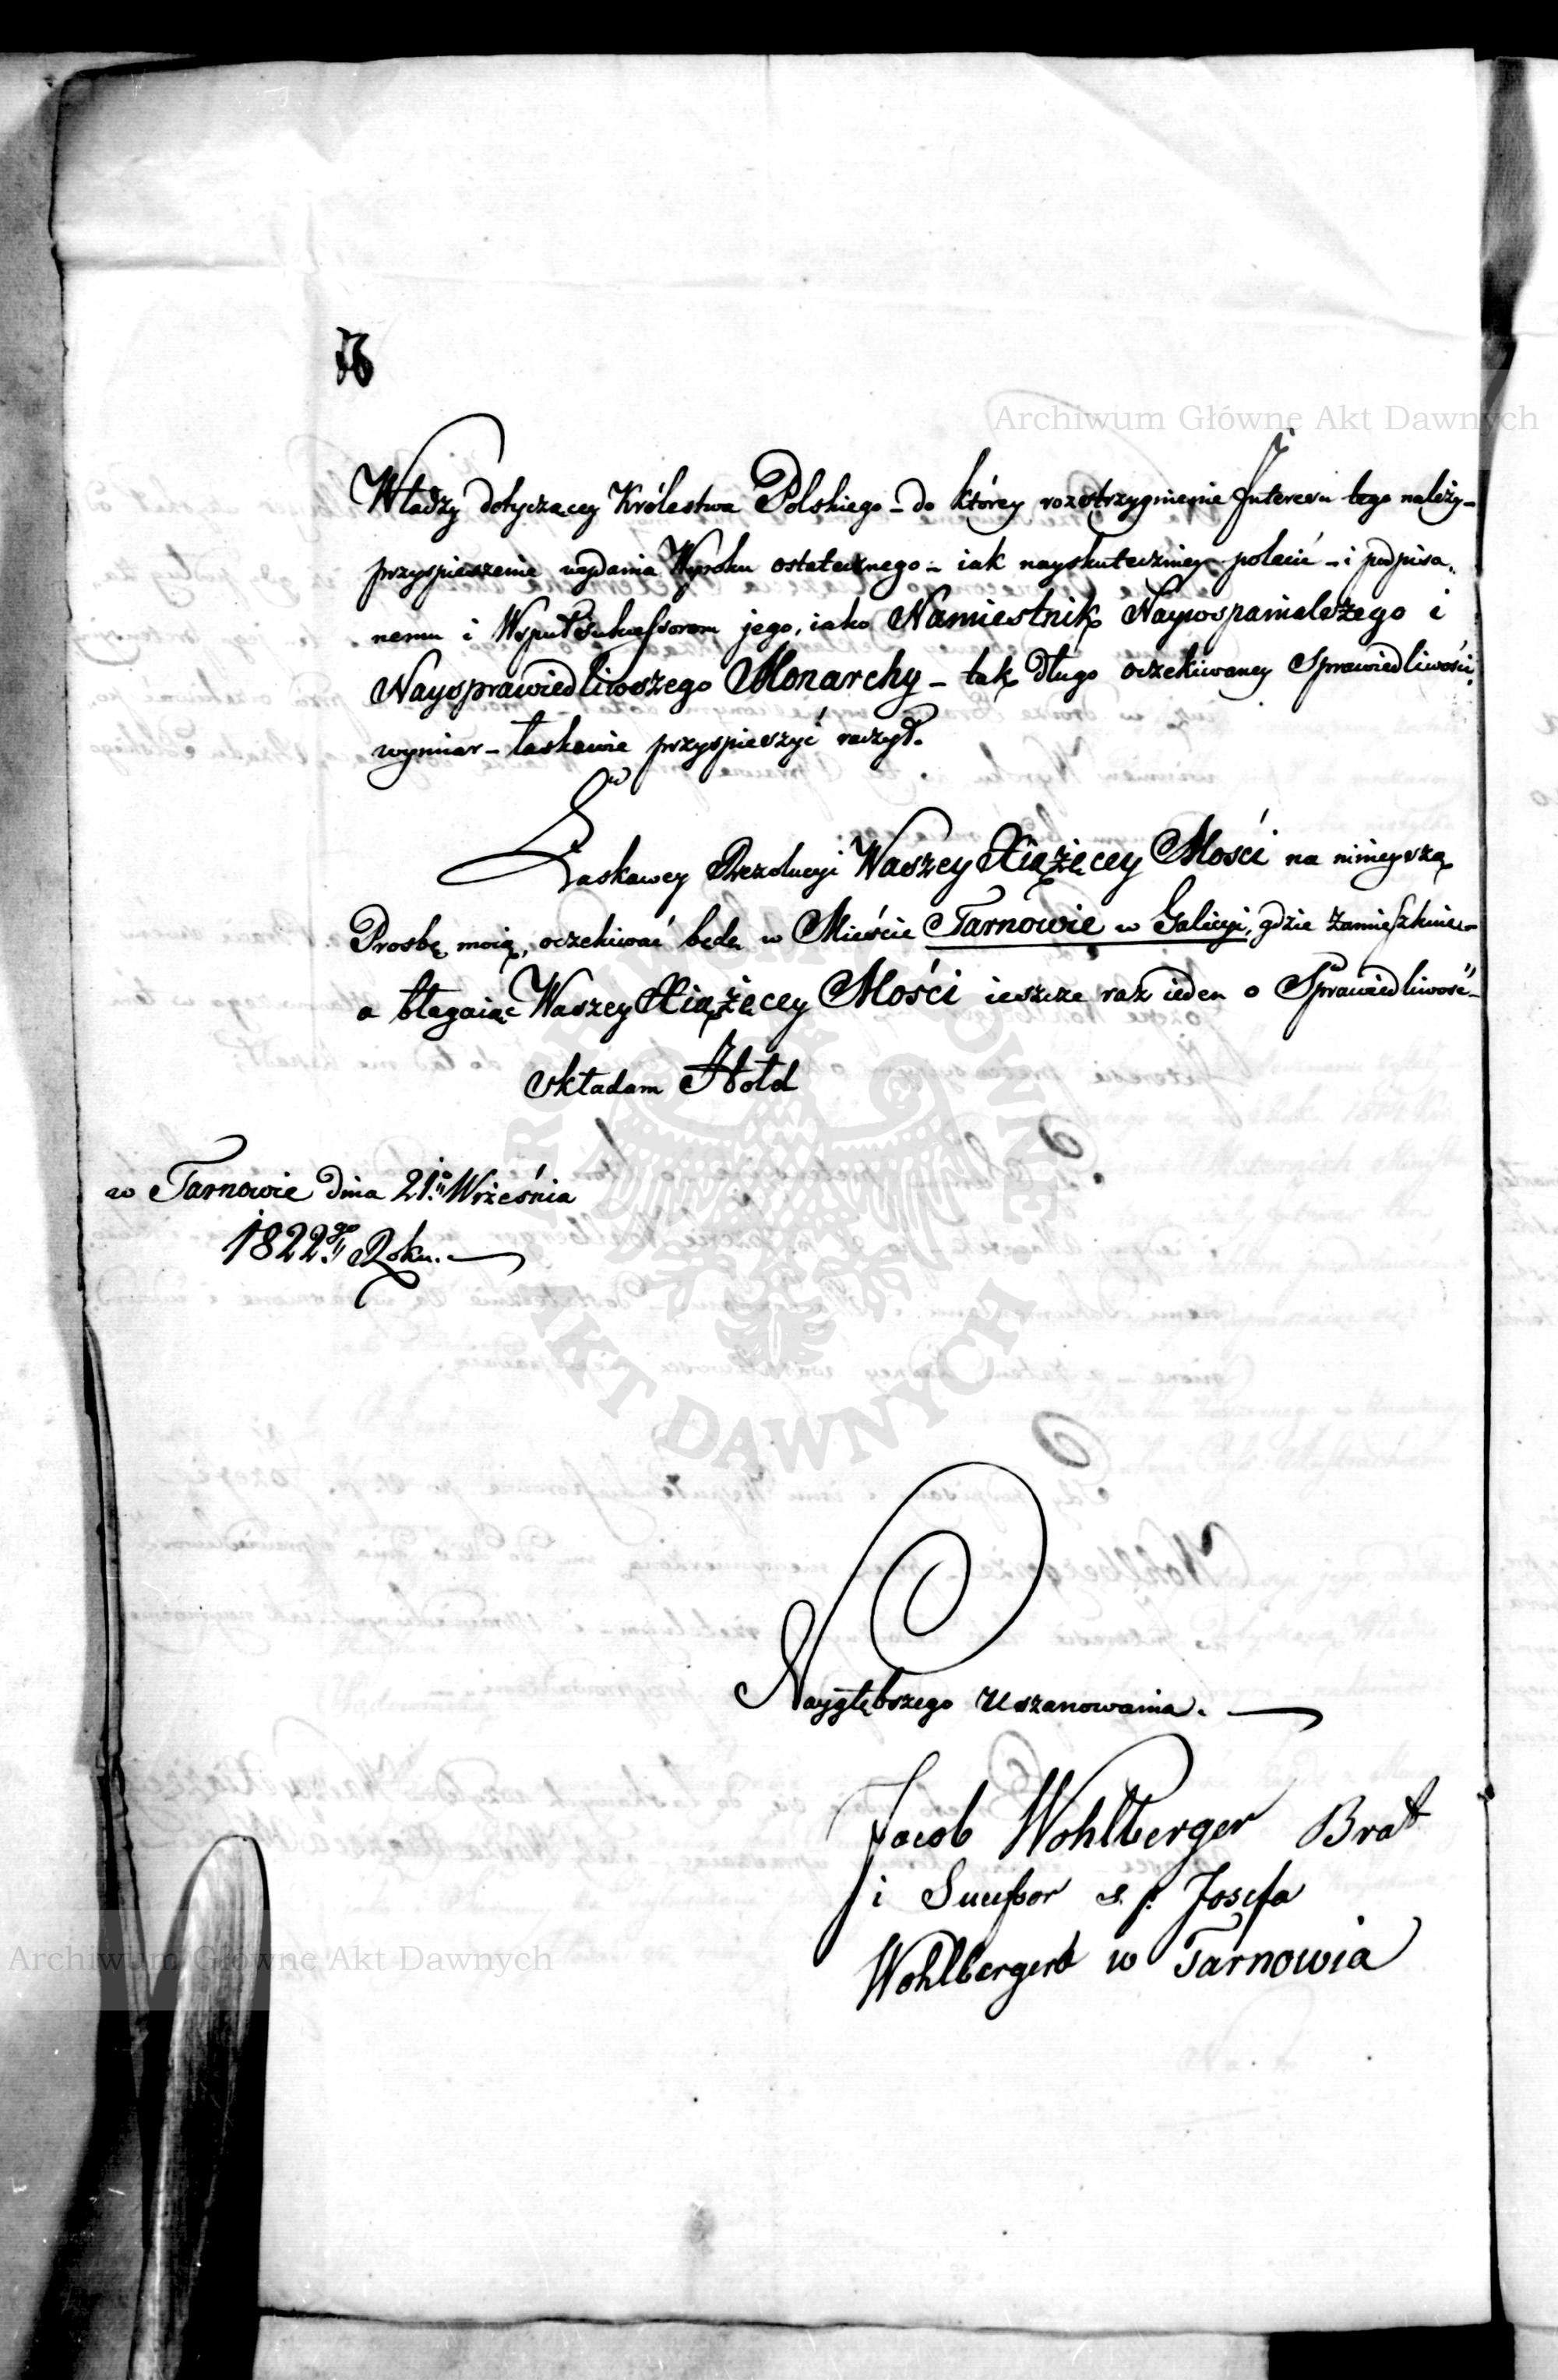 Archiwum Główne Akt Dawnych
Władzy dotyczącey Królestwa Polskiego – do którey rozstrzygnienie Interesu tego należy –
przyspieszenie wydania Wyroku ostatecznego – iak nayskuteczniey polecić – i podpisa„
nemu i WspułSukcessorom jego, iako Namiestnik Naywspanialszego i
Naysprawiedliwszego Monarchy – tak długo oczekiwaney Sprawiedliwości,
wymiar – łaskawie przyspieszyć raczył.
Łaskawey Rezolucyi Waszey Xiążęcey Mości na ninieyszą
Prosbę moią, oczekiwać będę w Mieście Tarnowie w Galicyi, gdzie zamieszkuię –
a błagaiąc Waszey Xiążęcey Mości ieszcze raz ieden o Sprawiedliwość –
składam Hołd
w Tarnowie dnia 21go Września
1822go Roku. —
Naygłębszego Uszanowania. —
Jacob Wohlberger Brat
i Sucessor s. p. Josefa
Wohlbergera w Tarnowia
ARCHIWUM GŁÓWNE AKT DAWNYCH
Archiwum Główne Akt Dawnych